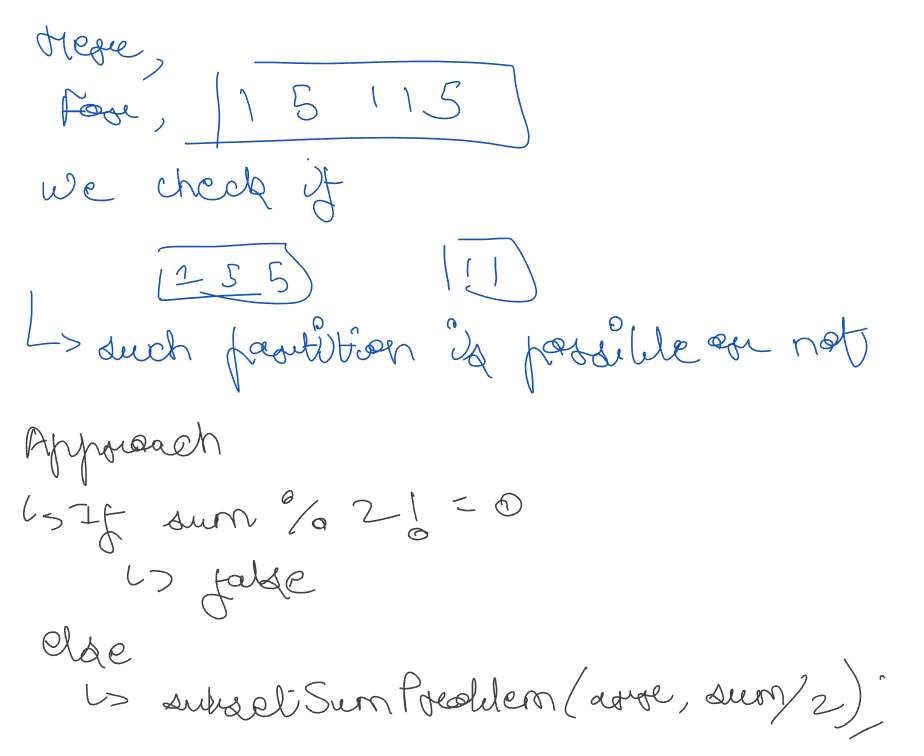 Here,
For, 1 5 11 5
we check if
1 5 5 11
↳ such partition is possible or not
Approach
↳ If sum % 2 != 0
↳ false
else
↳ subsetSumProblem(arr, sum/2);